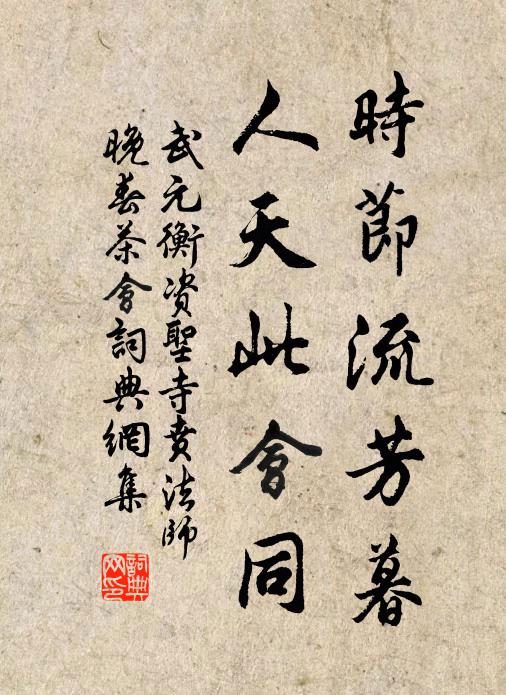 時節流芳暮
人天此會同
武元衡资聖寺賁法師
晚春茶會詞典網集
詞典
网印